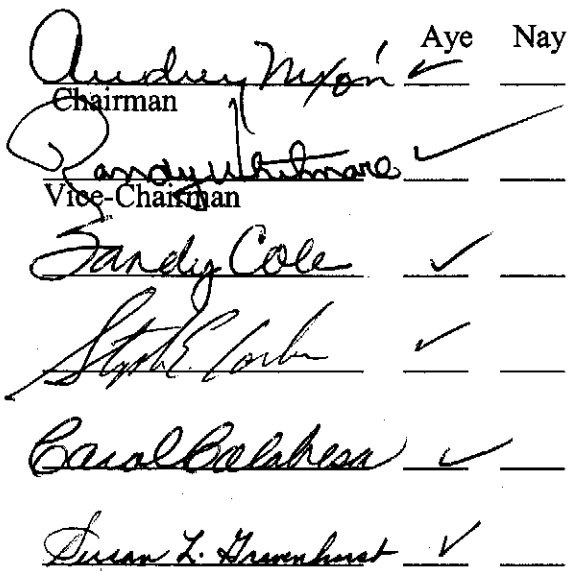 Aye Nay
Audrey Nixon ✓
Chairman
Randy Whitmore ✓
Vice-Chairman
Sandy Cole ✓
Stephen E. ✓
Carol Calabresa ✓
Susan L. Gravenhorst ✓